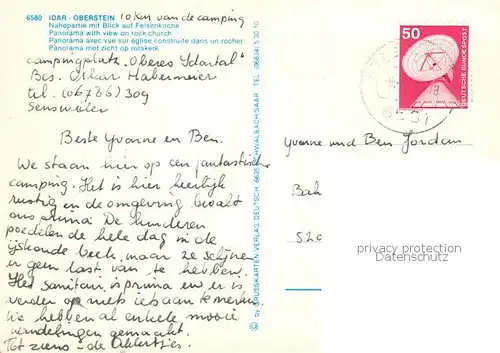 6580 IDAR-OBERSTEIN 10 km van de camping
Nahepartie mit Blick auf Felsenkirche
Panorama with view on rock-church
Panorama avec vue sur église construite dans un rocher
Panorama met zicht op rotskerk
campingplatz "Oberes Idartal"
Bes. Oskar Habermeier
tel. (06786) 309
Sensweiler
Beste Yvonne en Ben.
We staan hier op een fantastische
camping. Het is hier heerlijk
rustig en de omgeving bevalt
ons prima. De kinderen
poedelen de hele dag in de
ijskoude beek, maar ze schijnen
er geen last van te hebben.
Het sanitair is prima en er is
verder op niets iets aan te merken.
We hebben al enkele mooie
wandelingen gemaakt.
Tot ziens de
© by KRUSSKARTEN-VERLAG DEUTSCH, 6635 SCHWALBACH/SAAR TEL. (06834) 5 30 10
50
DEUTSCHE BUNDESPOST
Yvonne und Ben Jordan
Bah
privacy protection
Datenschutz